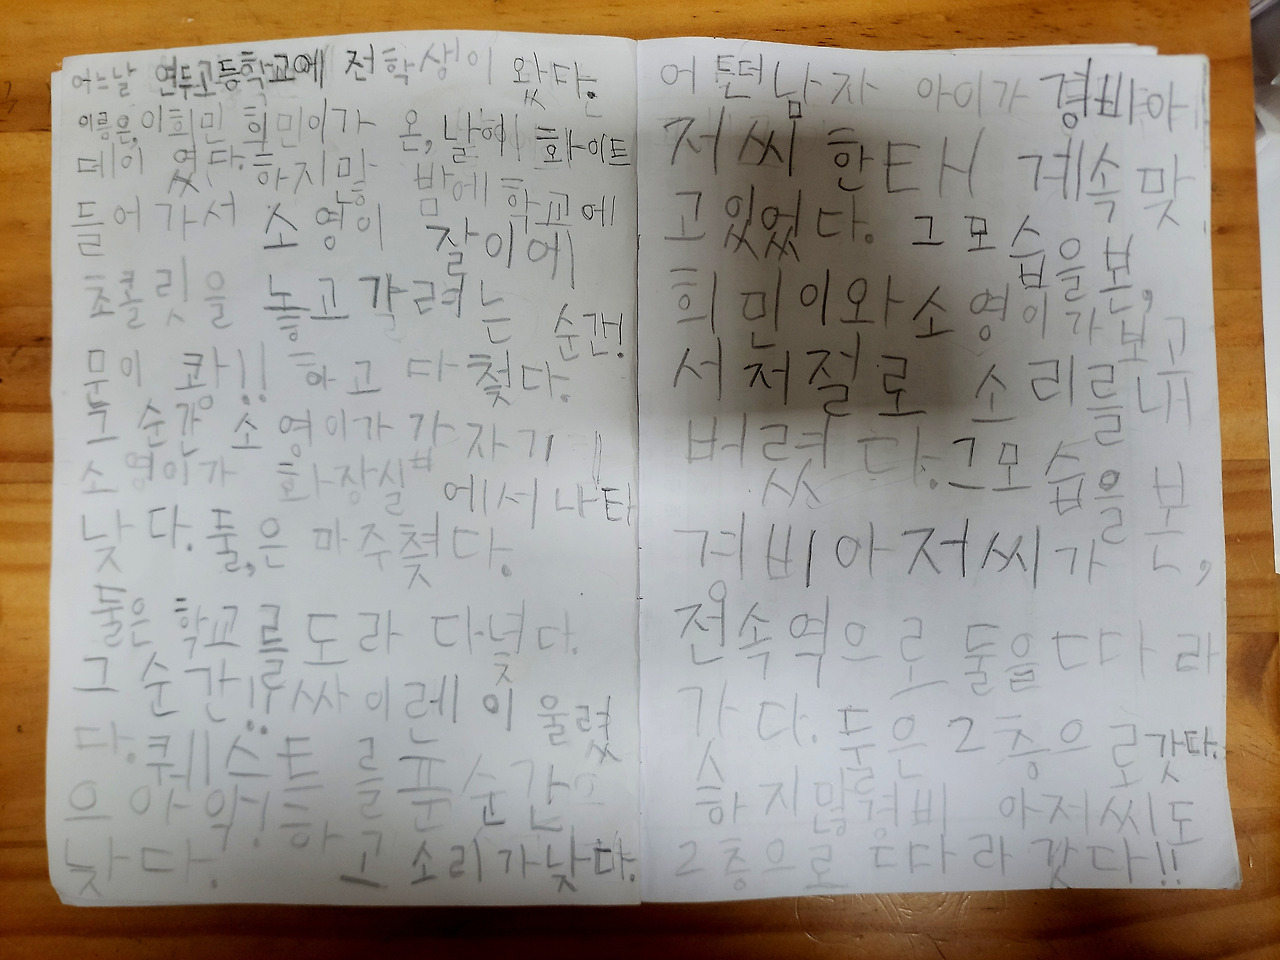 어느날 연두고등학교에 전학생이 왔다.
이름은, 이희민 희민이가 온, 날에 화이트
데이 였다. 하지많 밤에 학교에
들어가서 소영이 잘이에
초콜릿을 놓고 갈려는 순간!
문이 쾅!! 하고 다쳧다.
그 순간 소영이가 갑자기
소영이가 화장실 에서 나타
낫다. 둘,은 마주쳣다.
둘은 학교를 도라 다녓다.
그 순간!! 싸이렌이 울렸
다. 퀘스트를 푼 순간
으아악! 하고 소리가낫다.
어떤 남자 아이가 경비아
저씨 한테 계속 맞
고 있었다. 그 모습을 본,
희민이와 소영이가 보고
서 저절로 소리를 내
버렸다. 그 모습을 본
경비아저씨가,
전속역으로 둘을 따라
갓다. 둘은 2층으로 갓다.
하지많 경비 아저씨도
2층으로 따라 갓다!!